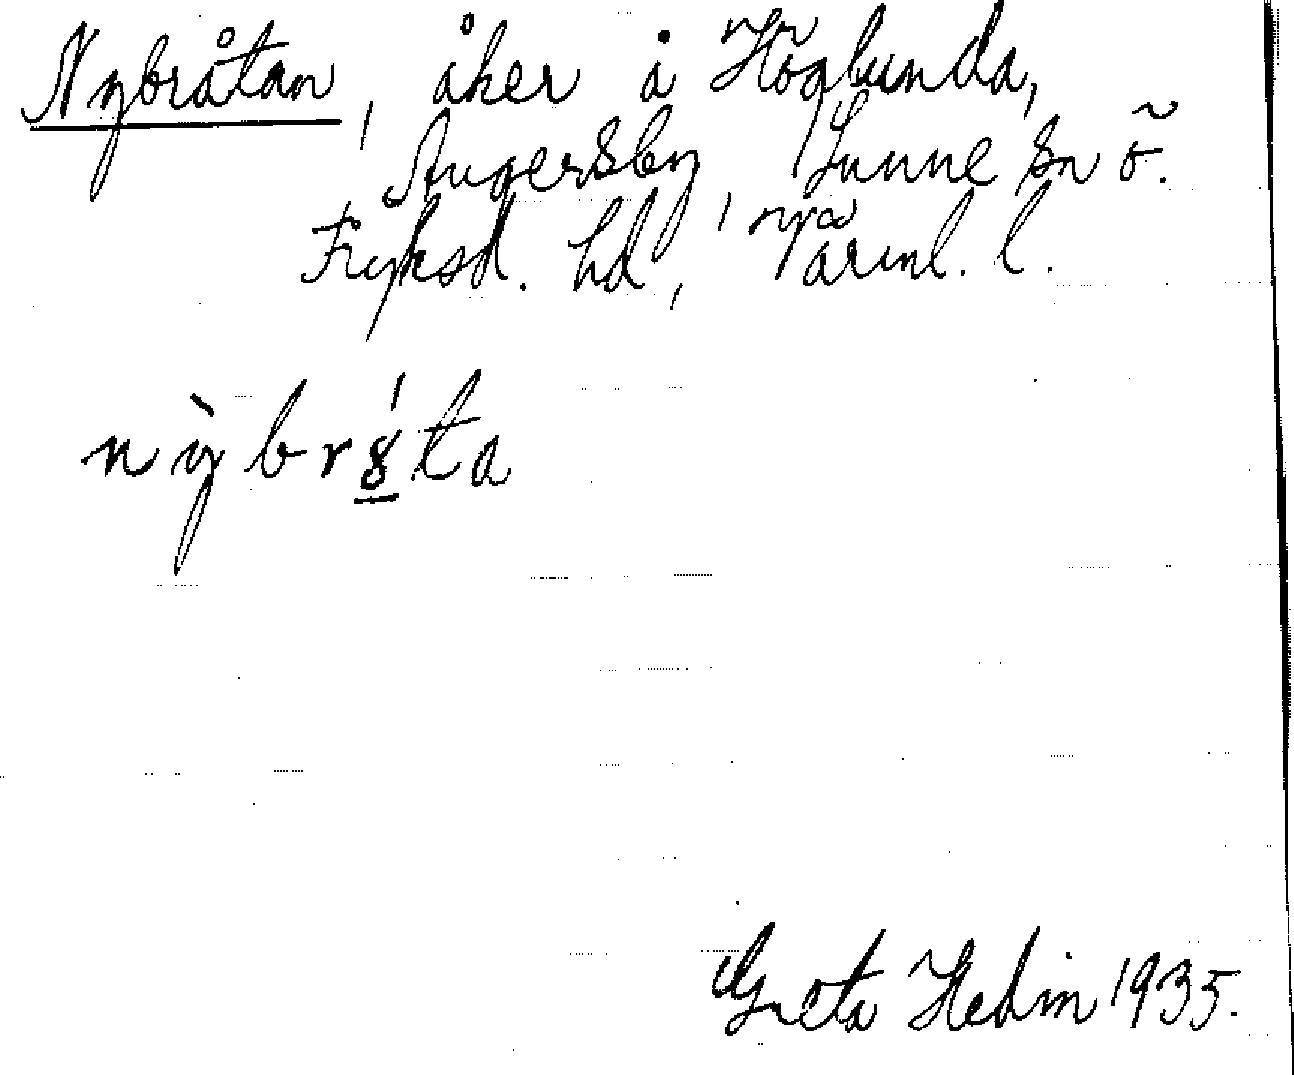 Nybråtan, åker å Höglunda,
Ingersby, Sunne sn ö.
Fryksd. hd, Värml. l.
nỳbrꞩ́ta
Greta Hedin 1935.